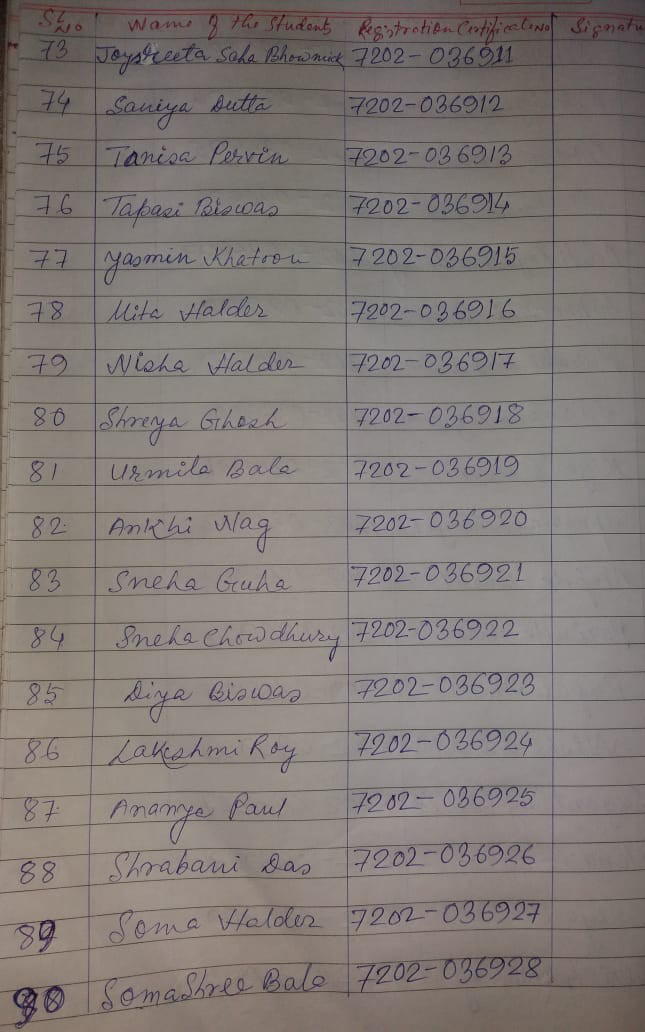 SL No Name of the Students Registration Certificate No Signatu
73 Joysreeta Saha Bhowmick 7202-036911
74 Saniya Dutta 7202-036912
75 Tanisa Pervin 7202-036913
76 Tapasi Biswas 7202-036914
77 Yasmin Khatoon 7202-036915
78 Mita Halder 7202-036916
79 Nisha Halder 7202-036917
80 Shreya Ghosh 7202-036918
81 Urmila Bala 7202-036919
82 Ankhi Nag 7202-036920
83 Sneha Guha 7202-036921
84 Sneha Chowdhury 7202-036922
85 Diya Biswas 7202-036923
86 Lakshmi Roy 7202-036924
87 Ananya Paul 7202-036925
88 Shrabani Das 7202-036926
89 Soma Halder 7202-036927
90 SomaShree Bala 7202-036928